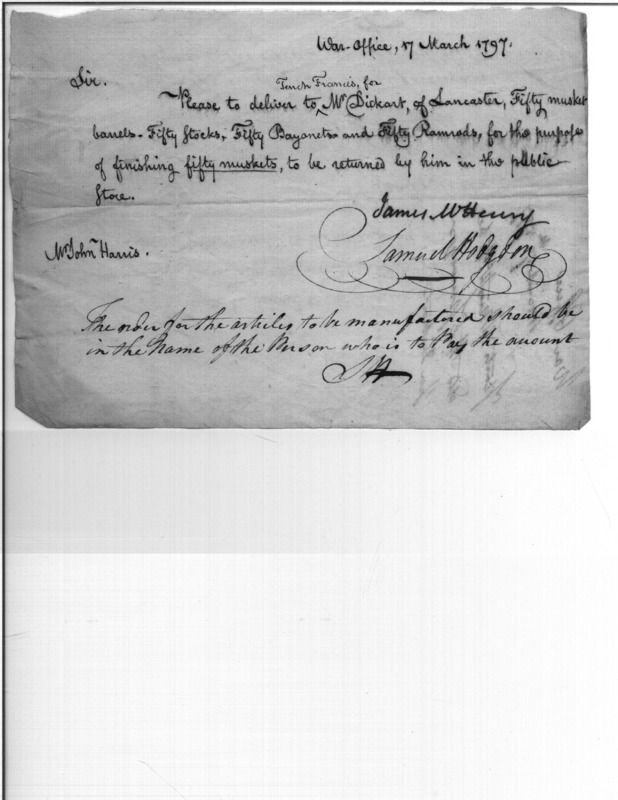 War-Office, 17 March 1797.
Sir.
Tench Francis, for
Please to deliver to ^ Mr Dickart, of Lancaster, Fifty musket
barrels - Fifty Stocks, Fifty Bayonets and Fifty Ramrods, for the purpose
of finishing fifty muskets, to be returned by him in the public
Store.
James McHenry
Samuel Hodgdon
Mr John Harris.
The order for the articles to be manufactured should be
in the Name of the Person who is to Pay the amount
SH